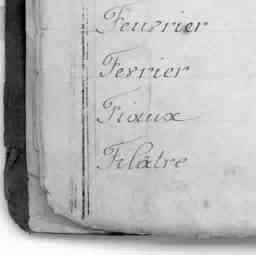 Feuvrier
Fevrier
Fioux
Filâtre